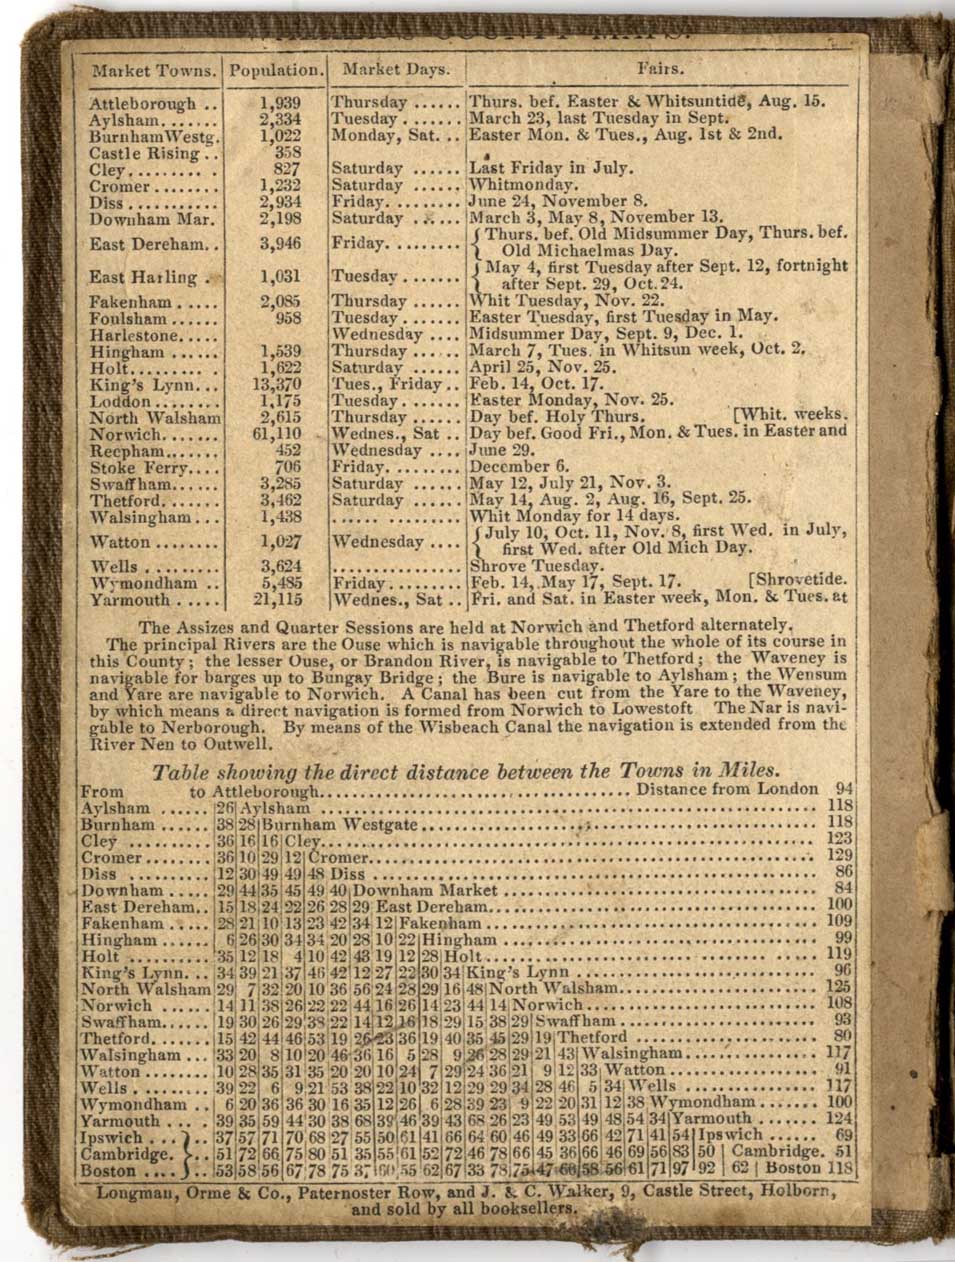 WALKER'S COUNTY MAPS.
Market Towns. Population. Market Days. Fairs.
Attleborough .. 1,939 Thursday ...... Thurs. bef. Easter & Whitsuntide, Aug. 15.
Aylsham....... 2,334 Tuesday ....... March 23, last Tuesday in Sept.
BurnhamWestg. 1,022 Monday, Sat. .. Easter Mon. & Tues., Aug. 1st & 2nd.
Castle Rising .. 358
Cley.......... 827 Saturday ...... Last Friday in July.
Cromer ........ 1,232 Saturday ...... Whitmonday.
Diss ........... 2,934 Friday......... June 24, November 8.
Downham Mar. 2,198 Saturday ...... March 3, May 8, November 13.
East Dereham.. 3,946 Friday. ........ { Thurs. bef. Old Midsummer Day, Thurs. bef.
Old Michaelmas Day.
East Harling . 1,031 Tuesday ....... { May 4, first Tuesday after Sept. 12, fortnight
after Sept. 29, Oct. 24.
Fakenham ..... 2,085 Thursday ...... Whit Tuesday, Nov. 22.
Foulsham ...... 958 Tuesday ....... Easter Tuesday, first Tuesday in May.
Harlestone..... Wednesday .... Midsummer Day, Sept. 9, Dec. 1.
Hingham ...... 1,539 Thursday ...... March 7, Tues. in Whitsun week, Oct. 2.
Holt.......... 1,622 Saturday ...... April 25, Nov. 25.
King's Lynn... 13,370 Tues., Friday .. Feb. 14, Oct. 17.
Loddon ........ 1,175 Tuesday....... Easter Monday, Nov. 25.
North Walsham 2,615 Thursday ...... Day bef. Holy Thurs. [Whit. weeks.
Norwich....... 61,110 Wednes., Sat .. Day bef. Good Fri., Mon. & Tues. in Easter and
Reepham....... 452 Wednesday .... June 29.
Stoke Ferry.... 706 Friday......... December 6.
Swaffham...... 3,285 Saturday ...... May 12, July 21, Nov. 3.
Thetford....... 3,462 Saturday ...... May 14, Aug. 2, Aug. 16, Sept. 25.
Walsingham... 1,438 ...... ......... Whit Monday for 14 days.
Watton ........ 1,027 Wednesday .... { July 10, Oct. 11, Nov. 8, first Wed. in July,
first Wed. after Old Mich Day.
Wells ......... 3,624 ................ Shrove Tuesday.
Wymondham .. 5,485 Friday......... Feb. 14, May 17, Sept. 17. [Shrovetide.
Yarmouth ..... 21,115 Wednes., Sat .. Fri. and Sat. in Easter week, Mon. & Tues. at
The Assizes and Quarter Sessions are held at Norwich and Thetford alternately.
The principal Rivers are the Ouse which is navigable throughout the whole of its course in
this County; the lesser Ouse, or Brandon River, is navigable to Thetford; the Waveney is
navigable for barges up to Bungay Bridge; the Bure is navigable to Aylsham; the Wensum
and Yare are navigable to Norwich. A Canal has been cut from the Yare to the Waveney,
by which means a direct navigation is formed from Norwich to Lowestoft The Nar is navi-
gable to Nerborough. By means of the Wisbeach Canal the navigation is extended from the
River Nen to Outwell.
Table showing the direct distance between the Towns in Miles.
From to Attleborough........ Distance from London 94
Aylsham ...... 26 Aylsham ........ 118
Burnham ...... 38 28 Burnham Westgate ........ 118
Cley .......... 36 16 16 Cley........ 123
Cromer ........ 36 10 29 12 Cromer........ 129
Diss .......... 12 30 49 49 48 Diss ........ 86
Downham ..... 29 44 35 45 49 40 Downham Market ........ 84
East Dereham.. 15 18 24 22 26 28 29 East Dereham........ 100
Fakenham ..... 28 21 10 13 23 42 34 12 Fakenham ........ 109
Hingham ...... 6 26 30 34 34 20 28 10 22 Hingham ........ 99
Holt .......... 35 12 18 4 10 42 43 19 12 28 Holt ........ 119
King's Lynn... 34 39 21 37 46 42 12 27 22 30 34 King's Lynn ........ 96
North Walsham 29 7 32 20 10 36 56 24 28 29 16 48 North Walsham........ 125
Norwich ...... 14 11 38 26 22 22 44 16 26 14 23 44 14 Norwich........ 108
Swaffham...... 19 30 26 29 38 22 14 12 16 18 29 15 38 29 Swaffham ........ 93
Thetford....... 15 42 44 46 53 19 26 23 36 19 40 35 45 29 19 Thetford ........ 80
Walsingham ... 33 20 8 10 20 46 36 16 5 28 9 26 28 29 21 43 Walsingham........ 117
Watton ........ 10 28 35 31 35 20 20 10 24 7 29 24 36 21 9 12 33 Watton ........ 91
Wells ......... 39 22 6 9 21 53 38 22 10 32 12 29 29 34 28 46 5 34 Wells ........ 117
Wymondham .. 6 20 36 36 30 16 35 12 26 6 28 39 23 9 22 20 31 12 38 Wymondham....... 100
Yarmouth ... 39 35 59 44 30 38 68 39 46 39 43 68 26 23 49 53 49 48 54 34 Yarmouth ....... 124
Ipswich ... 37 57 71 70 68 27 55 50 61 41 66 64 60 46 49 33 66 42 71 41 54 Ipswich ...... 69
Cambridge. .. 51 72 66 75 80 51 35 55 61 52 72 46 78 66 45 36 66 46 69 56 83 50 Cambridge. 51
Boston .... 53 58 56 67 78 75 37 60 55 62 67 33 78 75 47 66 58 56 61 71 97 92 62 Boston 118
Longman, Orme & Co., Paternoster Row, and J. & C. Walker, 9, Castle Street, Holborn,
and sold by all booksellers.